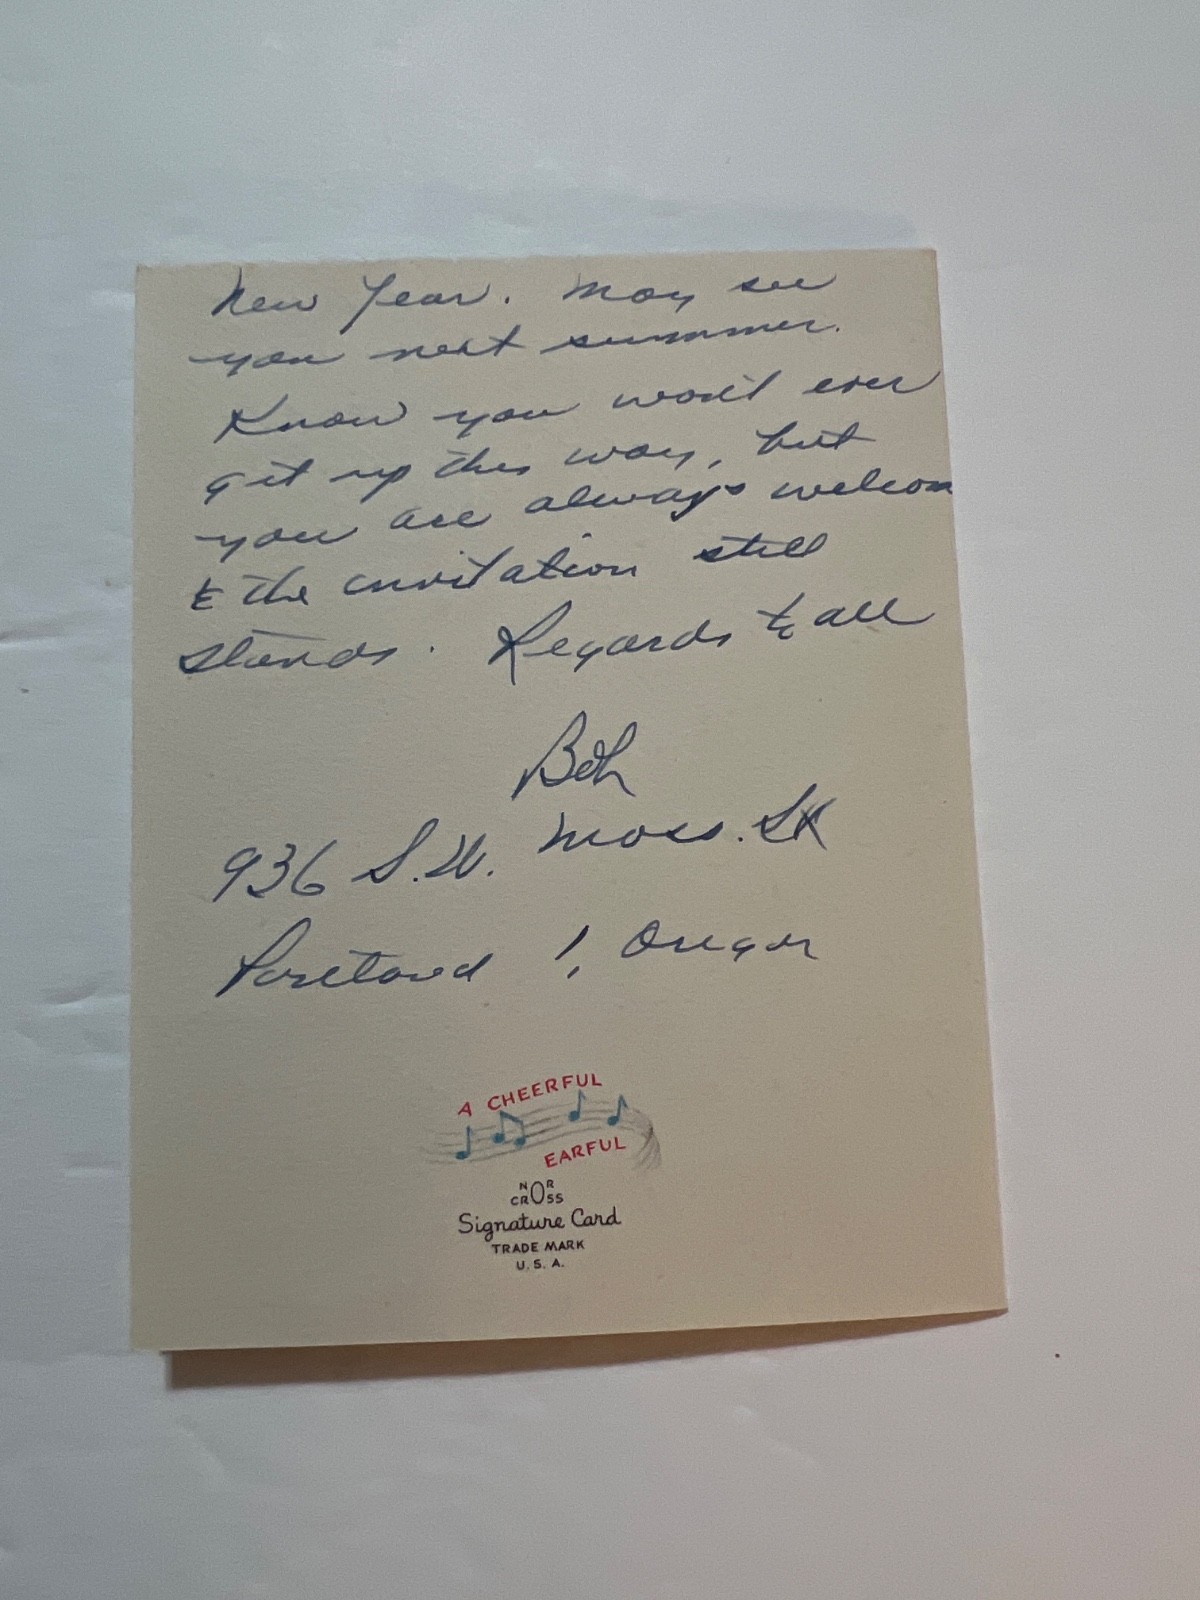 New Year. May see
you next summer.
Know you won't ever
get up this way, but
you are always welcom
& the invitation still
stands. Regards to all
Bob
936 S.W. Moss. St
Portland 1, Oregon
A CHEERFUL
EARFUL
NOR
CROSS
Signature Card
TRADE MARK
U.S.A.